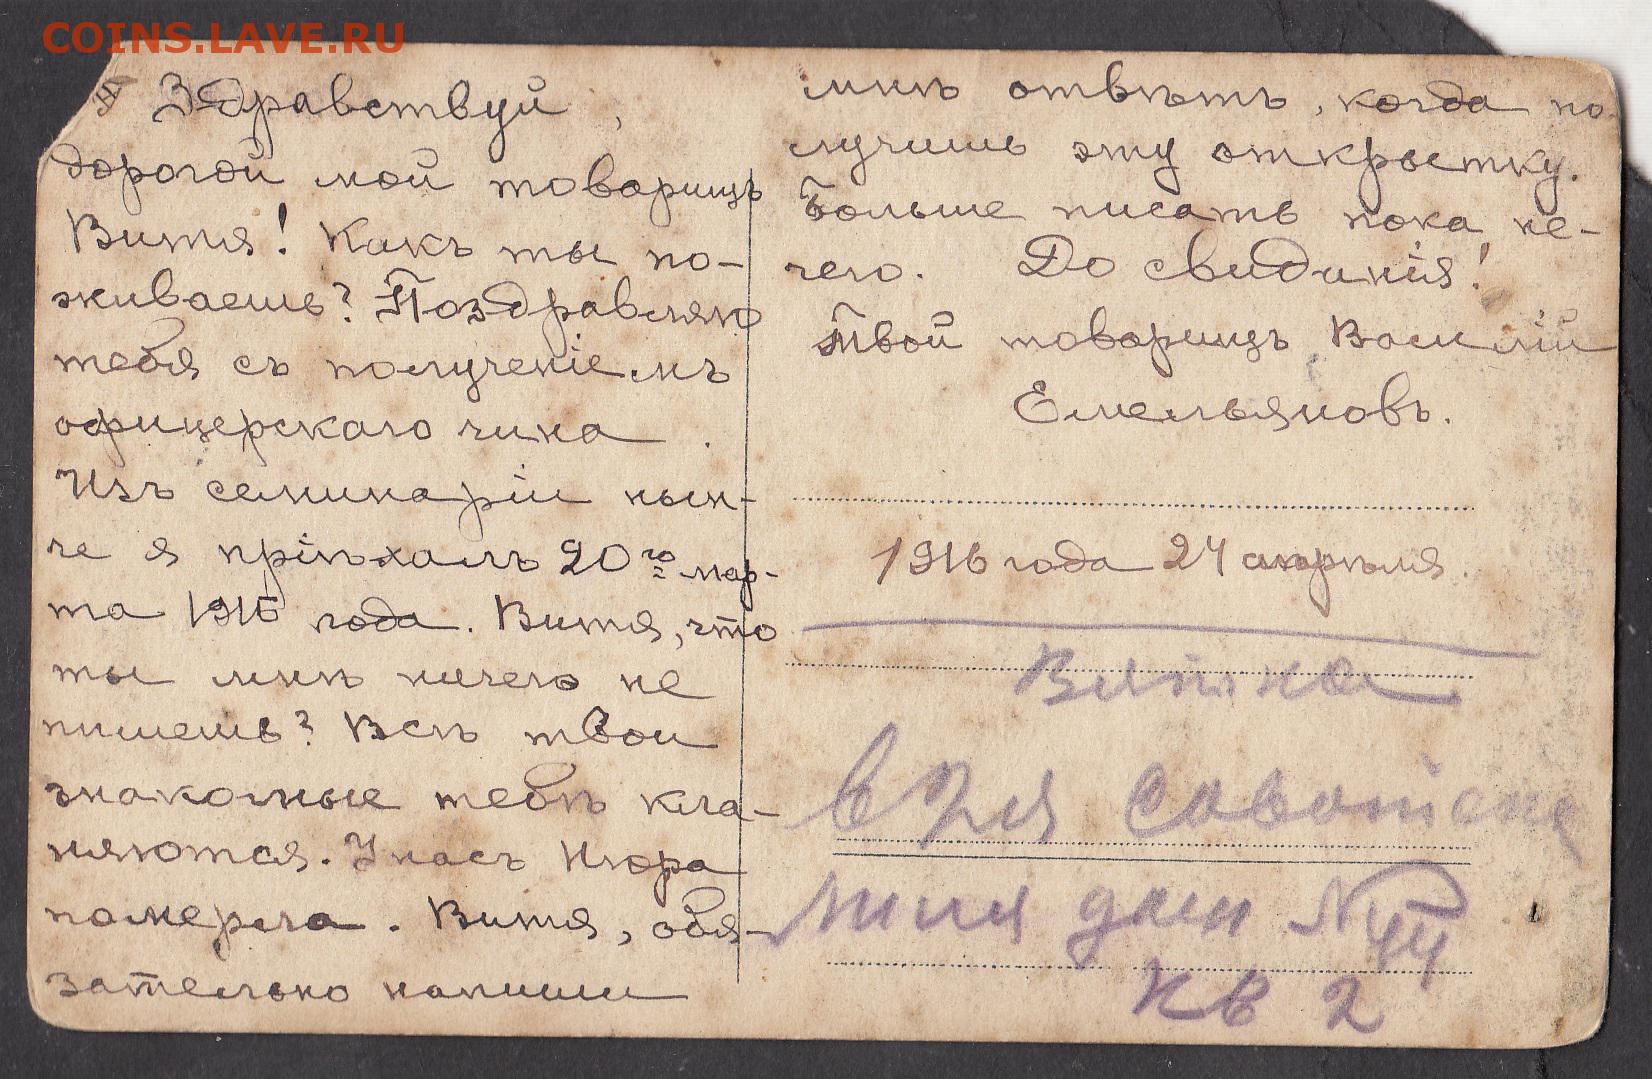 COINS.LAVE.RU
Здравствуй,
дорогой мой товарищъ
Витя! Какъ ты по-
живаешь? Поздравляю
тебя съ полученіемъ
офицерскаго чина.
Изъ семинаріи нын-
че я пріѣхалъ 20го мар-
та 1916 года. Витя, что
ты мнѣ ничего не
пишешь? Всѣ твои
знакомые тебѣ кла-
няются. У насъ Нюра
померла. Витя, обя-
зательно напиши
мнѣ отвѣтъ, когда по-
лучишь эту открытку.
Больше писать пока не-
чего. До свиданія!
Твой товарищъ Василій
Емельяновъ.
1916 года 24 апрѣля.
Вятка
линія дом №
кв 2